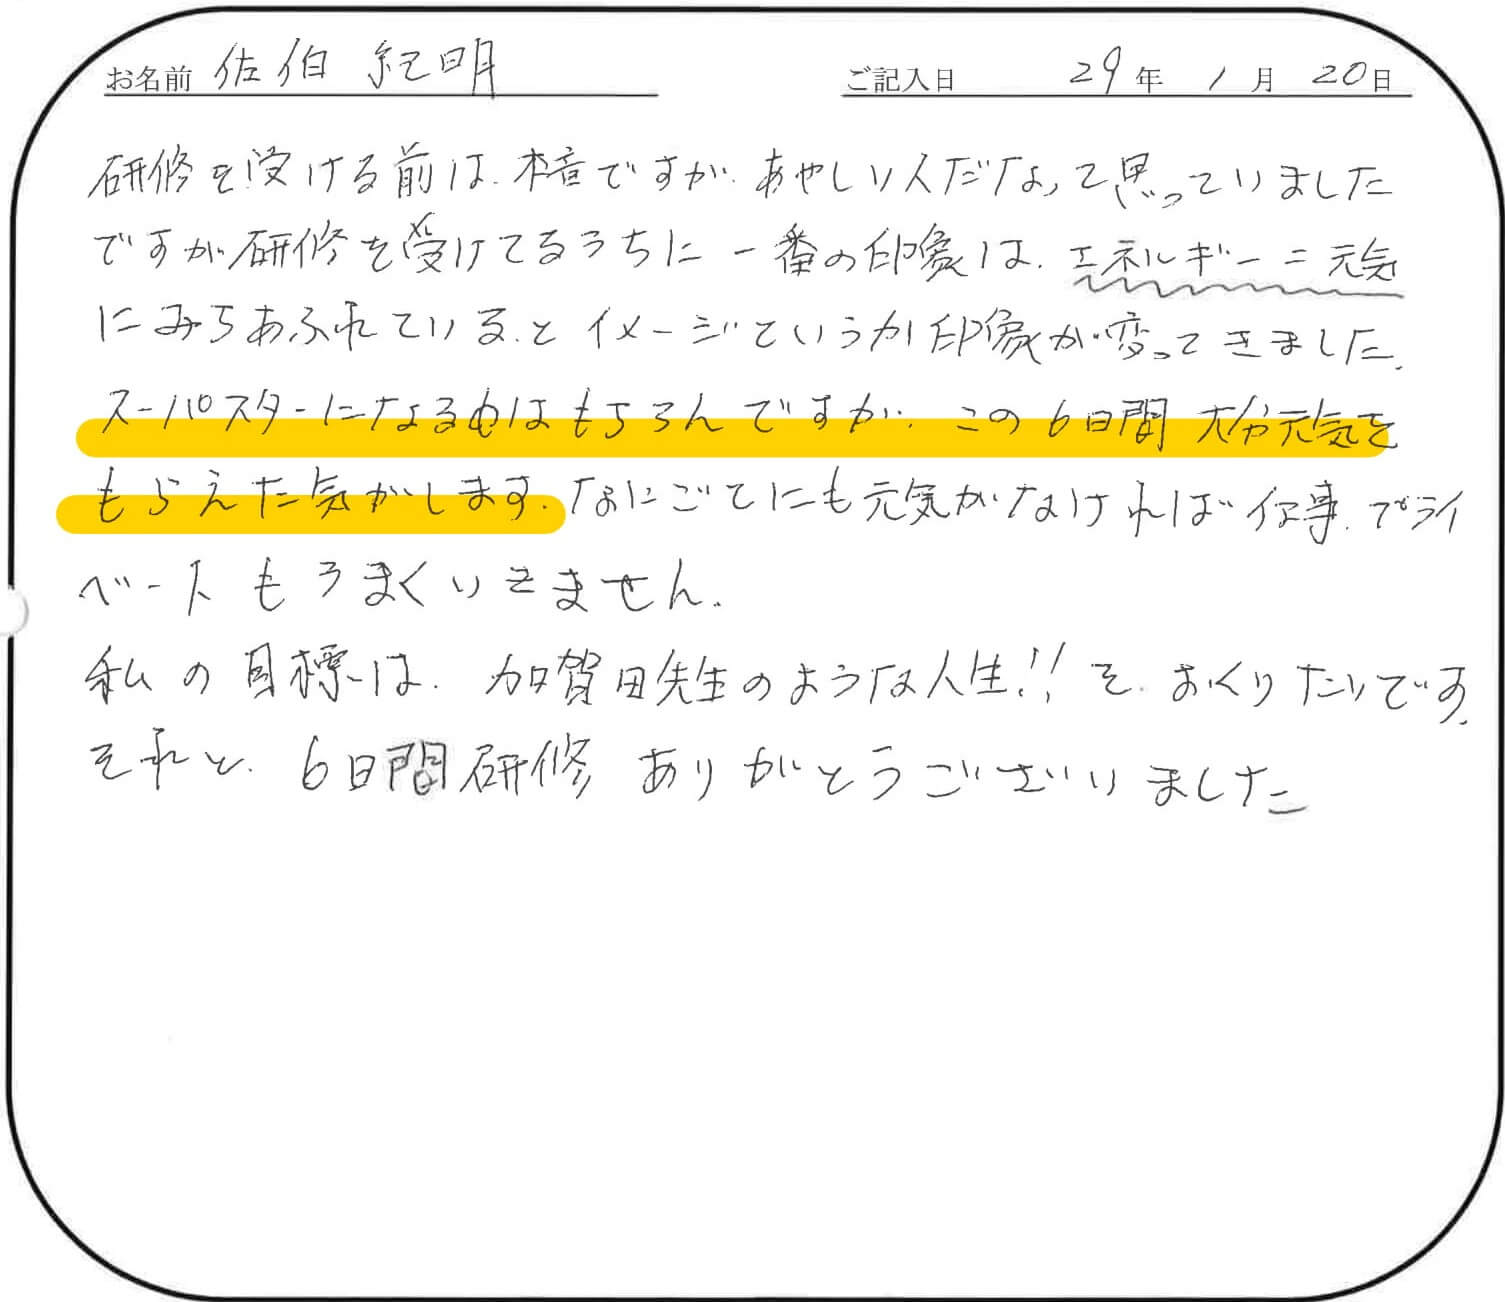 お名前 佐伯 紀明 ご記入日 29年 1月 20日
研修を受ける前は、本音ですが、あやしい人だなって思っていました
ですが研修を受けてるうちに一番の印象は、エネルギー=元気
にみちあふれている、とイメージというか印象が変ってきました。
スーパスターになるのはもちろんですが、この6日間 大分元気を
もらえた気がします。なにごとにも元気がなければ仕事、プライ
ベートもうまくいきません。
私の目標は、加賀田先生のような人生!!を、おくりたいです。
それと、6日間研修 ありがとうございました